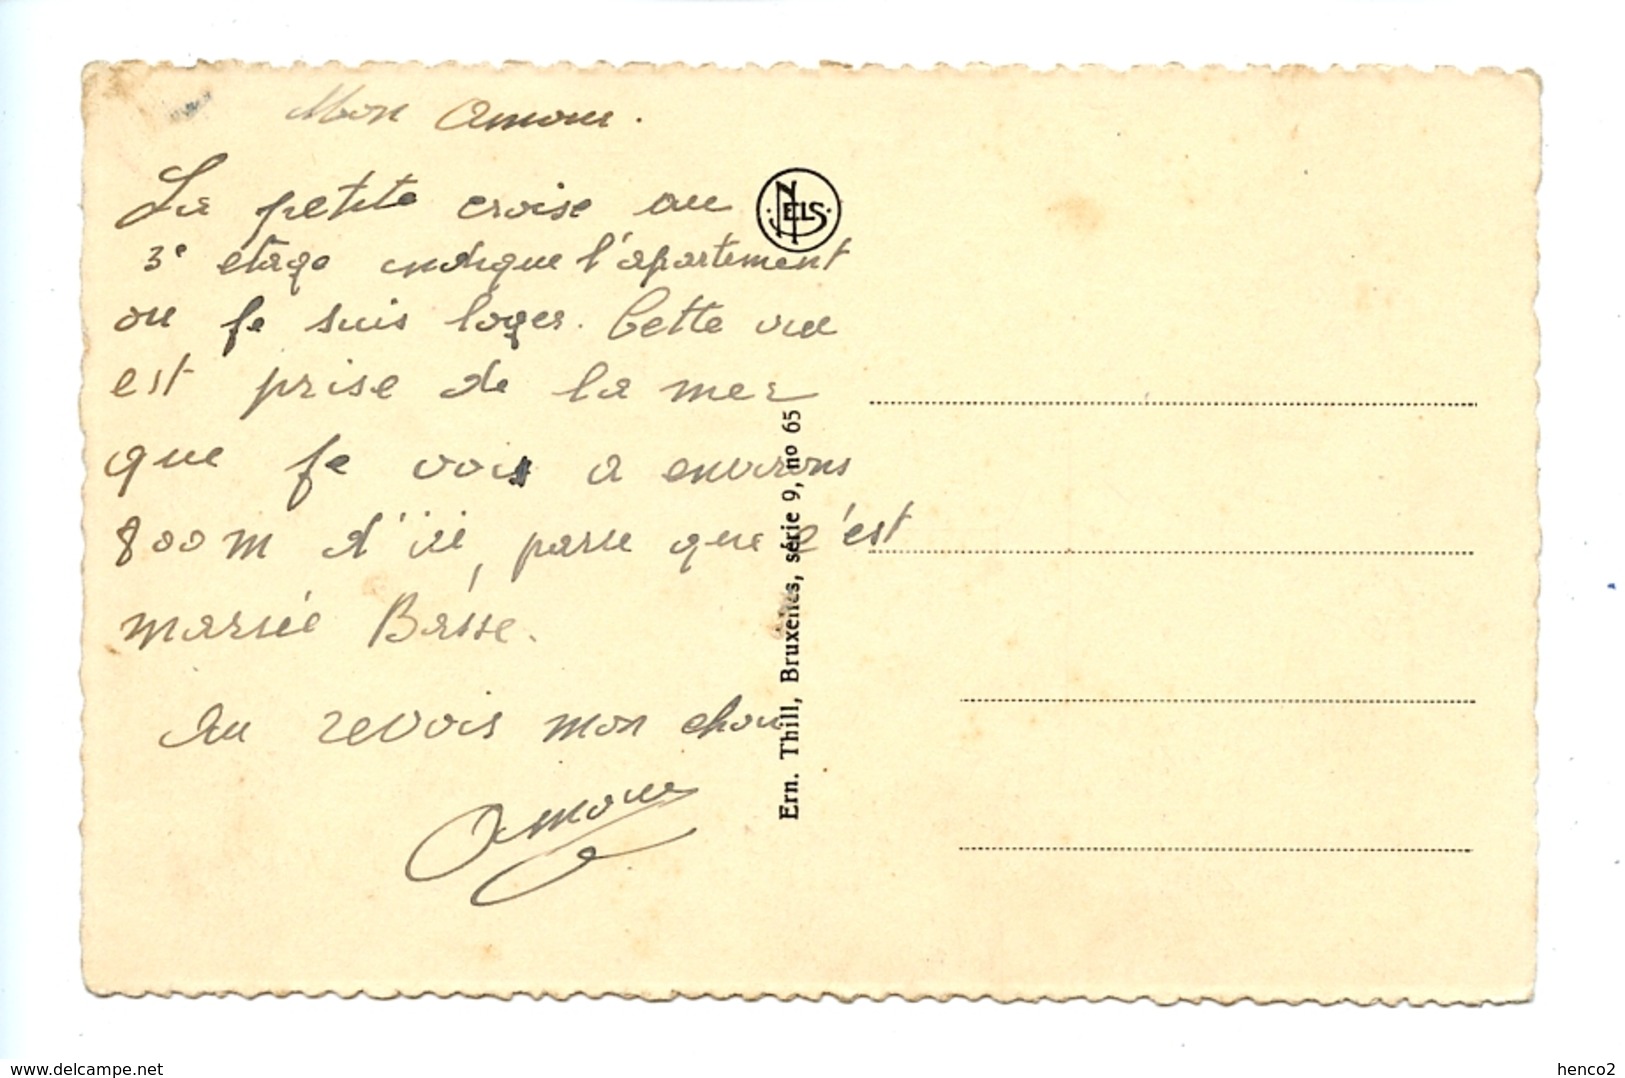 Mon Amour.
La petite croise au
3e etage indique l'apartement
ou je suis loger. Cette vue
est prise de la mer
que je vois a environs
800m d'ici, parse que c'est
mariée Basse.
Au revois mon chou
Amour
NELS
Ern. Thill, Bruxelles, série 9, no 65
www.delcampe.net
henco2